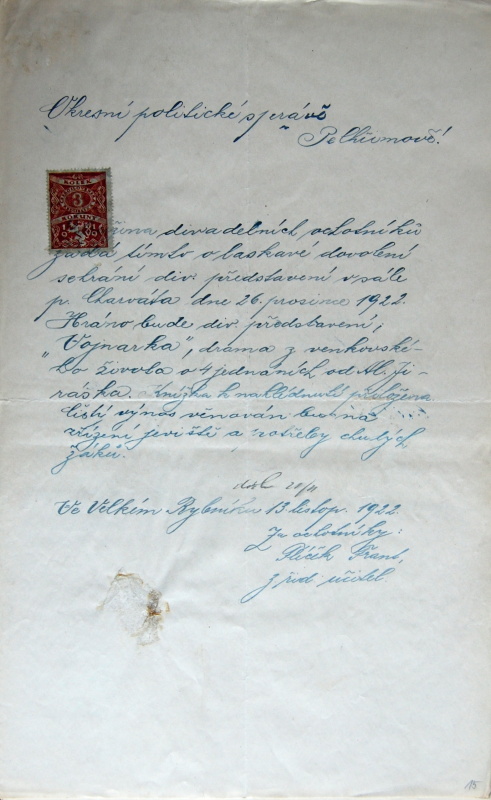 Okresní politické správě
v Pelhřimově!
KOLEK
3
KORUNY
divadelních ochotníků
žádá tímto o laskavé dovolení
sehrání div. představení v sále
p. Charváta dne 26. prosince 1922.
Hráno bude div. představení;
"Vojnarka", drama z venkovské-
ho života o 4 jednáních od Al. Ji-
ráska. Knížka k nahlédnutí přiložena
čistý výnos věnován bude na
zřízení jeviště a potřeby chudých
žáků.
Ve Velkém Rybníku 13. listop. 1922.
Za ochotníky:
Frant,
učitel
15